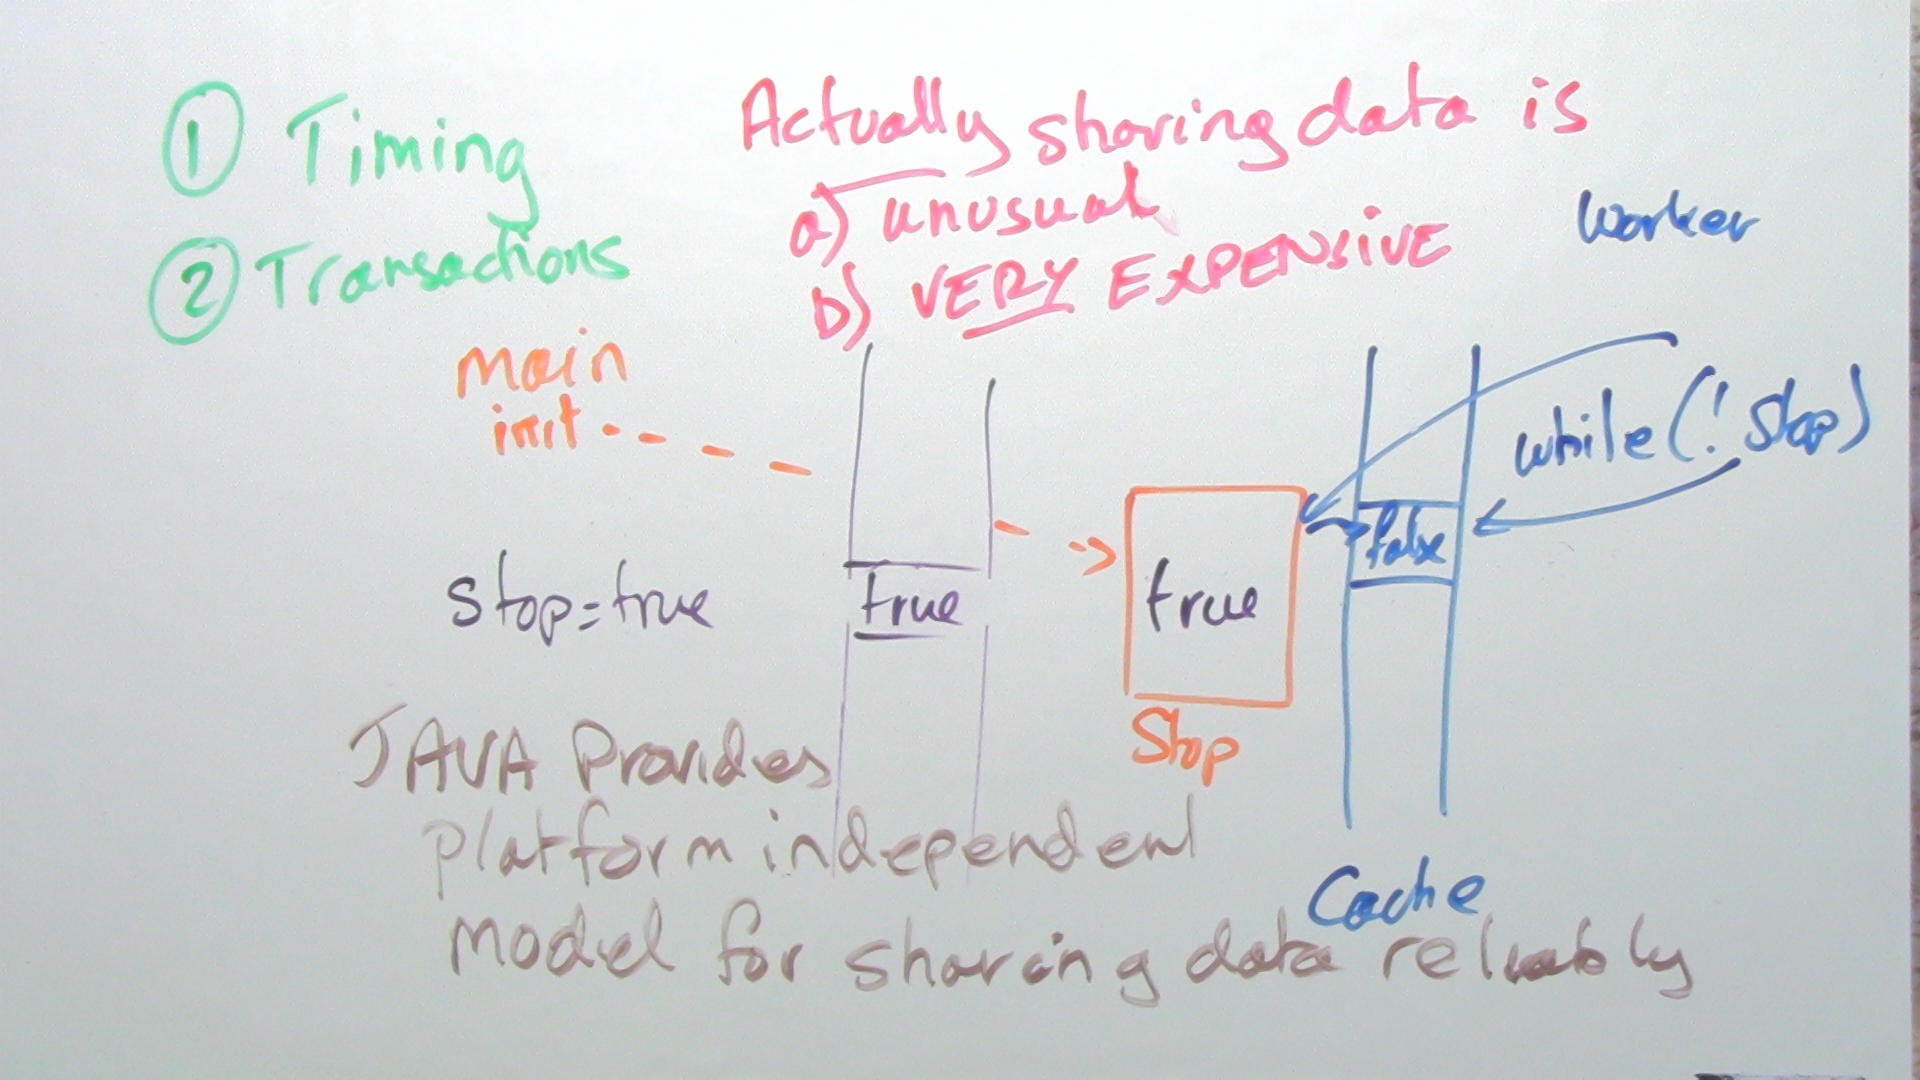 ① Timing
② Transactions
Actually sharing data is
a) unusual
b) VERY EXPENSIVE
worker
main
init
while (! stop)
false
stop=true
true
true
Stop
JAVA Provides
platform independent
model for sharing data reliably
Cache